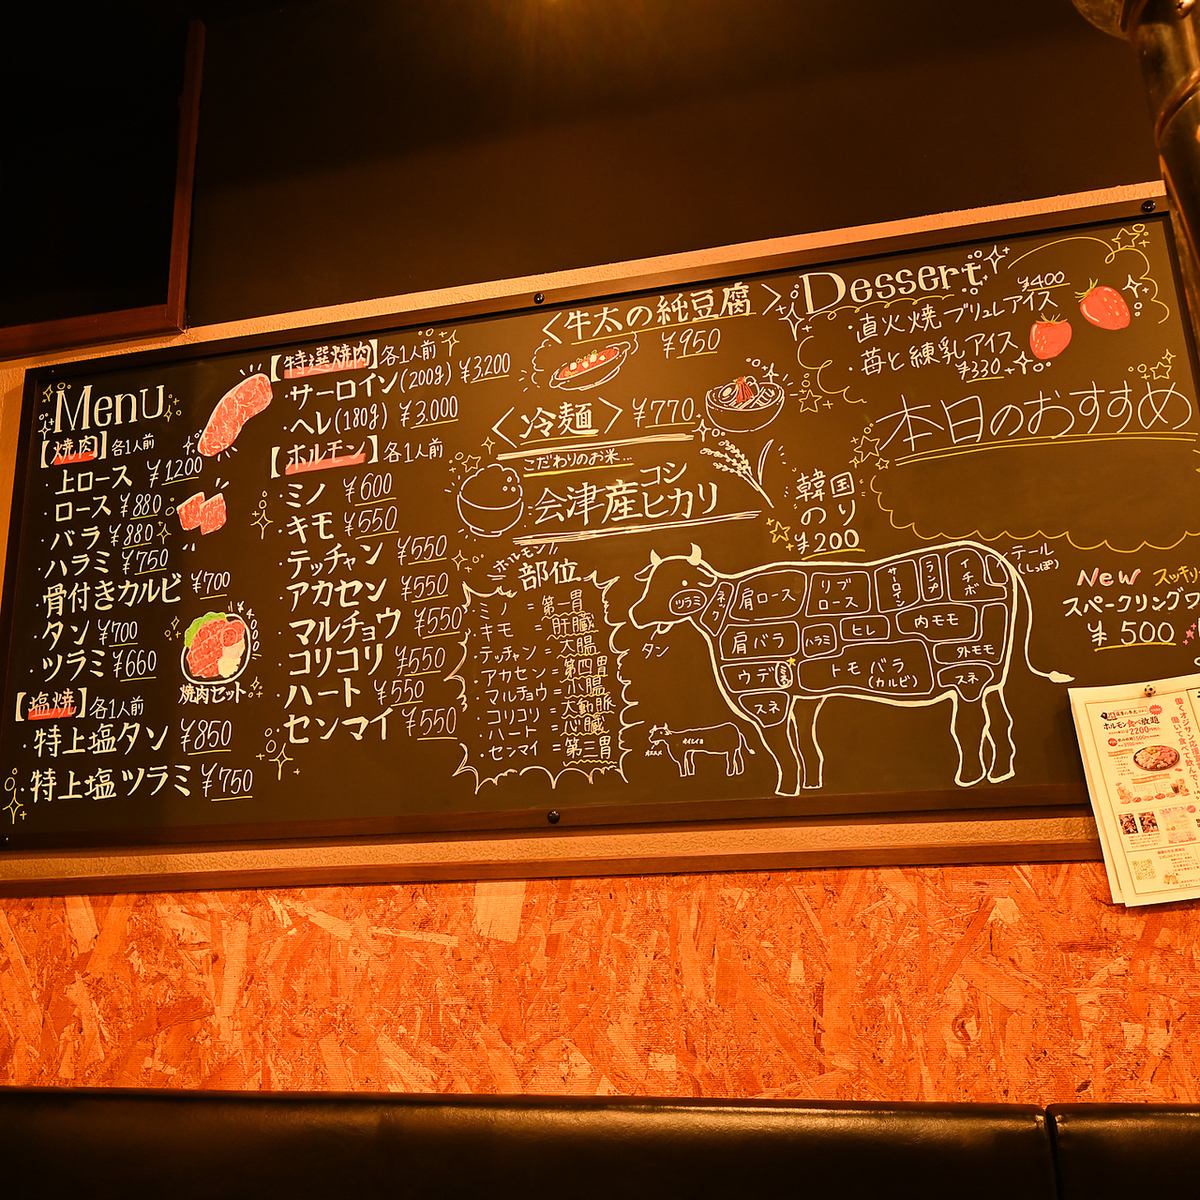 Menu
【焼肉】各1人前
・上ロース ¥1,200
・ロース ¥880
・バラ ¥880
・ハラミ ¥750
・骨付きカルビ ¥700
・タン ¥700
・ツラミ ¥660
焼肉セット
【塩焼】各1人前
・特上塩タン ¥850
・特上塩ツラミ ¥750
【特選焼肉】各1人前
・サーロイン(200g) ¥3,200
・ヘレ(180g) ¥3,000
【ホルモン】各1人前
・ミノ ¥600
・キモ ¥550
・テッチャン ¥550
・アカセン ¥550
・マルチョウ ¥550
・コリコリ ¥550
・ハート ¥550
・センマイ ¥550
<牛太の純豆腐>
¥950
<冷麺> ¥770
こだわりのお米…
会津産コシヒカリ
韓国
のり
¥200
ホルモン
部位
・ミノ = 第一胃
・キモ = 肝臓
・テッチャン = 大腸
・アカセン = 第四胃
・マルチョウ = 小腸
・コリコリ = 大動脈
・ハート = 心臓
・センマイ = 第三胃
ツラミ
タン
ネック
肩ロース
リブロース
サーロイン
ランプ
イチボ
テール
(しっぽ)
肩バラ
ハラミ
ヒレ
内モモ
外モモ
ウデ
トモバラ
(カルビ)
スネ
スネ
Dessert
・直火焼ブリュレアイス ¥400
・苺と練乳アイス
¥330
本日のおすすめ
New スッキリ
スパークリングワ
¥500
ホルモン食べ放題
2200円